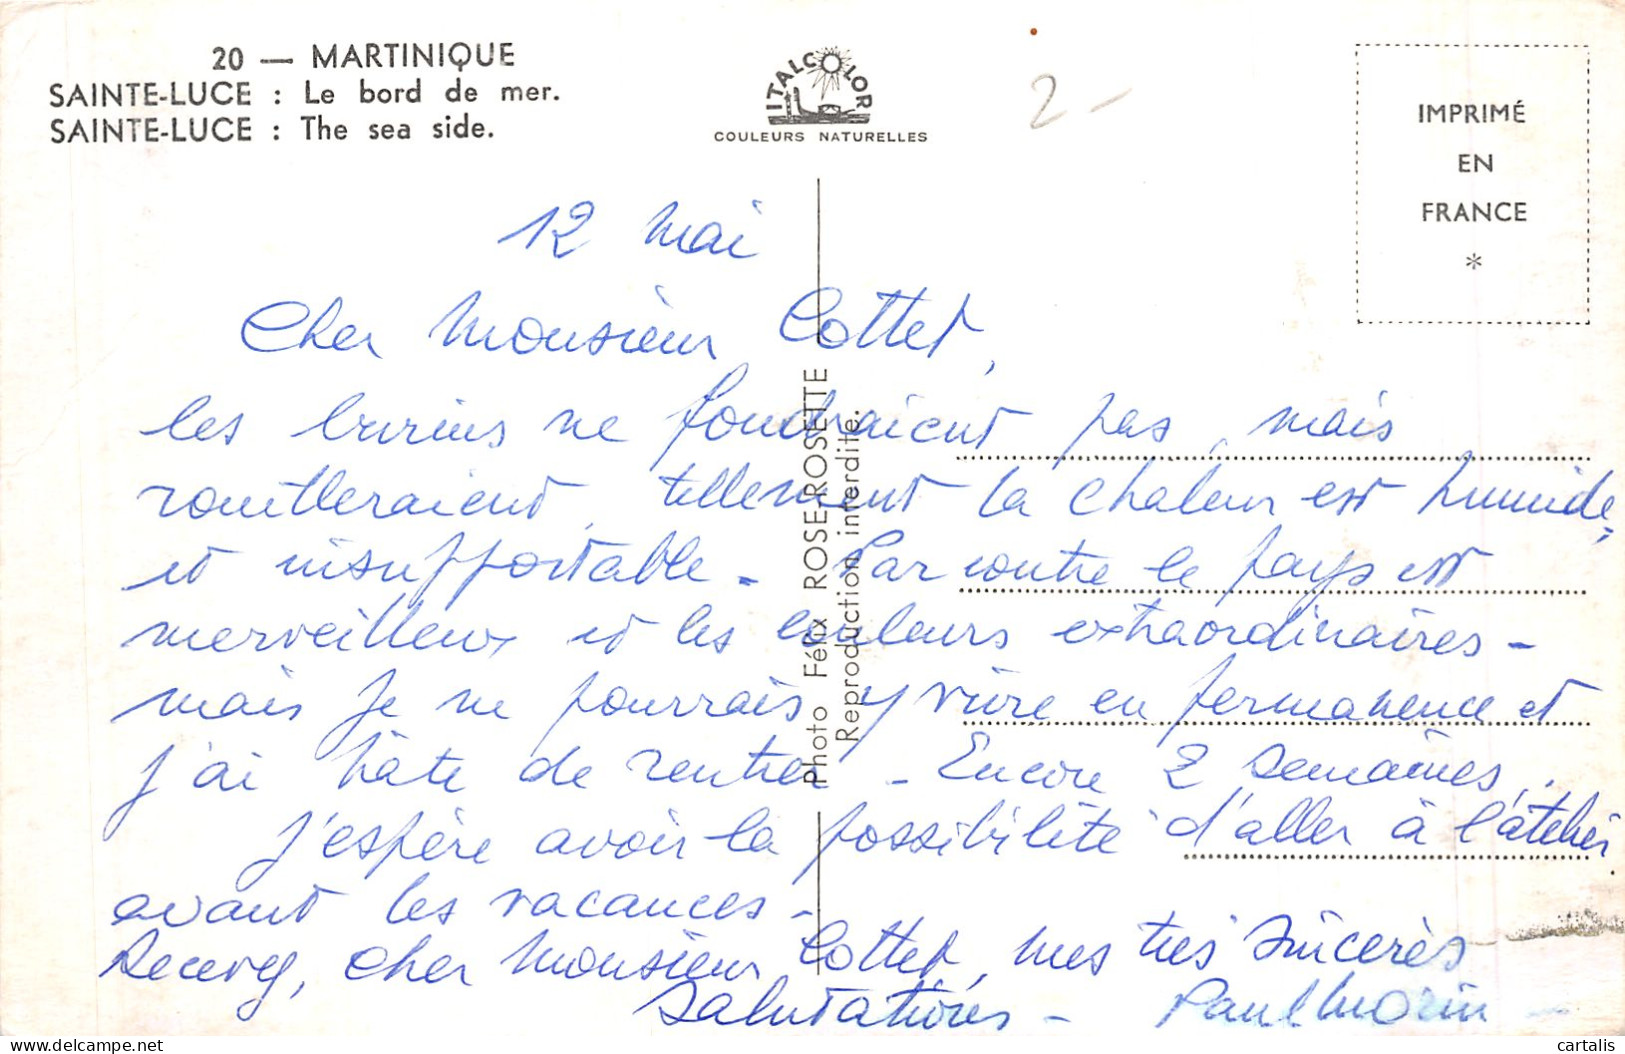 20 — MARTINIQUE
SAINTE-LUCE : Le bord de mer.
SAINTE-LUCE : The sea side.
ITALCOLOR
COULEURS NATURELLES
2 -
IMPRIMÉ
EN
FRANCE
*
Photo Félix ROSE-ROSETTE
Reproduction interdite.
12 Mai
Cher Monsieur Cottet,
les burins ne foudraient pas, mais
rouilleraient, tellement la chaleur est humide,
et insupportable - Par contre le pays est
merveilleux et les couleurs extraordinaires -
mais je ne pourrais y vivre en permanence et
j'ai hâte de rentrer - Encore 2 semaines.
J'espère avoir la possibilité d'aller à l'atelier
avant les vacances -
Recevez, cher Monsieur Cottet, mes très sincères
salutations - Paul Morin -
cartalis
delcampe.net